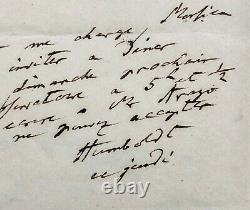 me charge
inviter a Diner
dimanche prochain
a 5h et ½
Mr Arago
ne pouvez accepter
Humboldt
ce jeudi